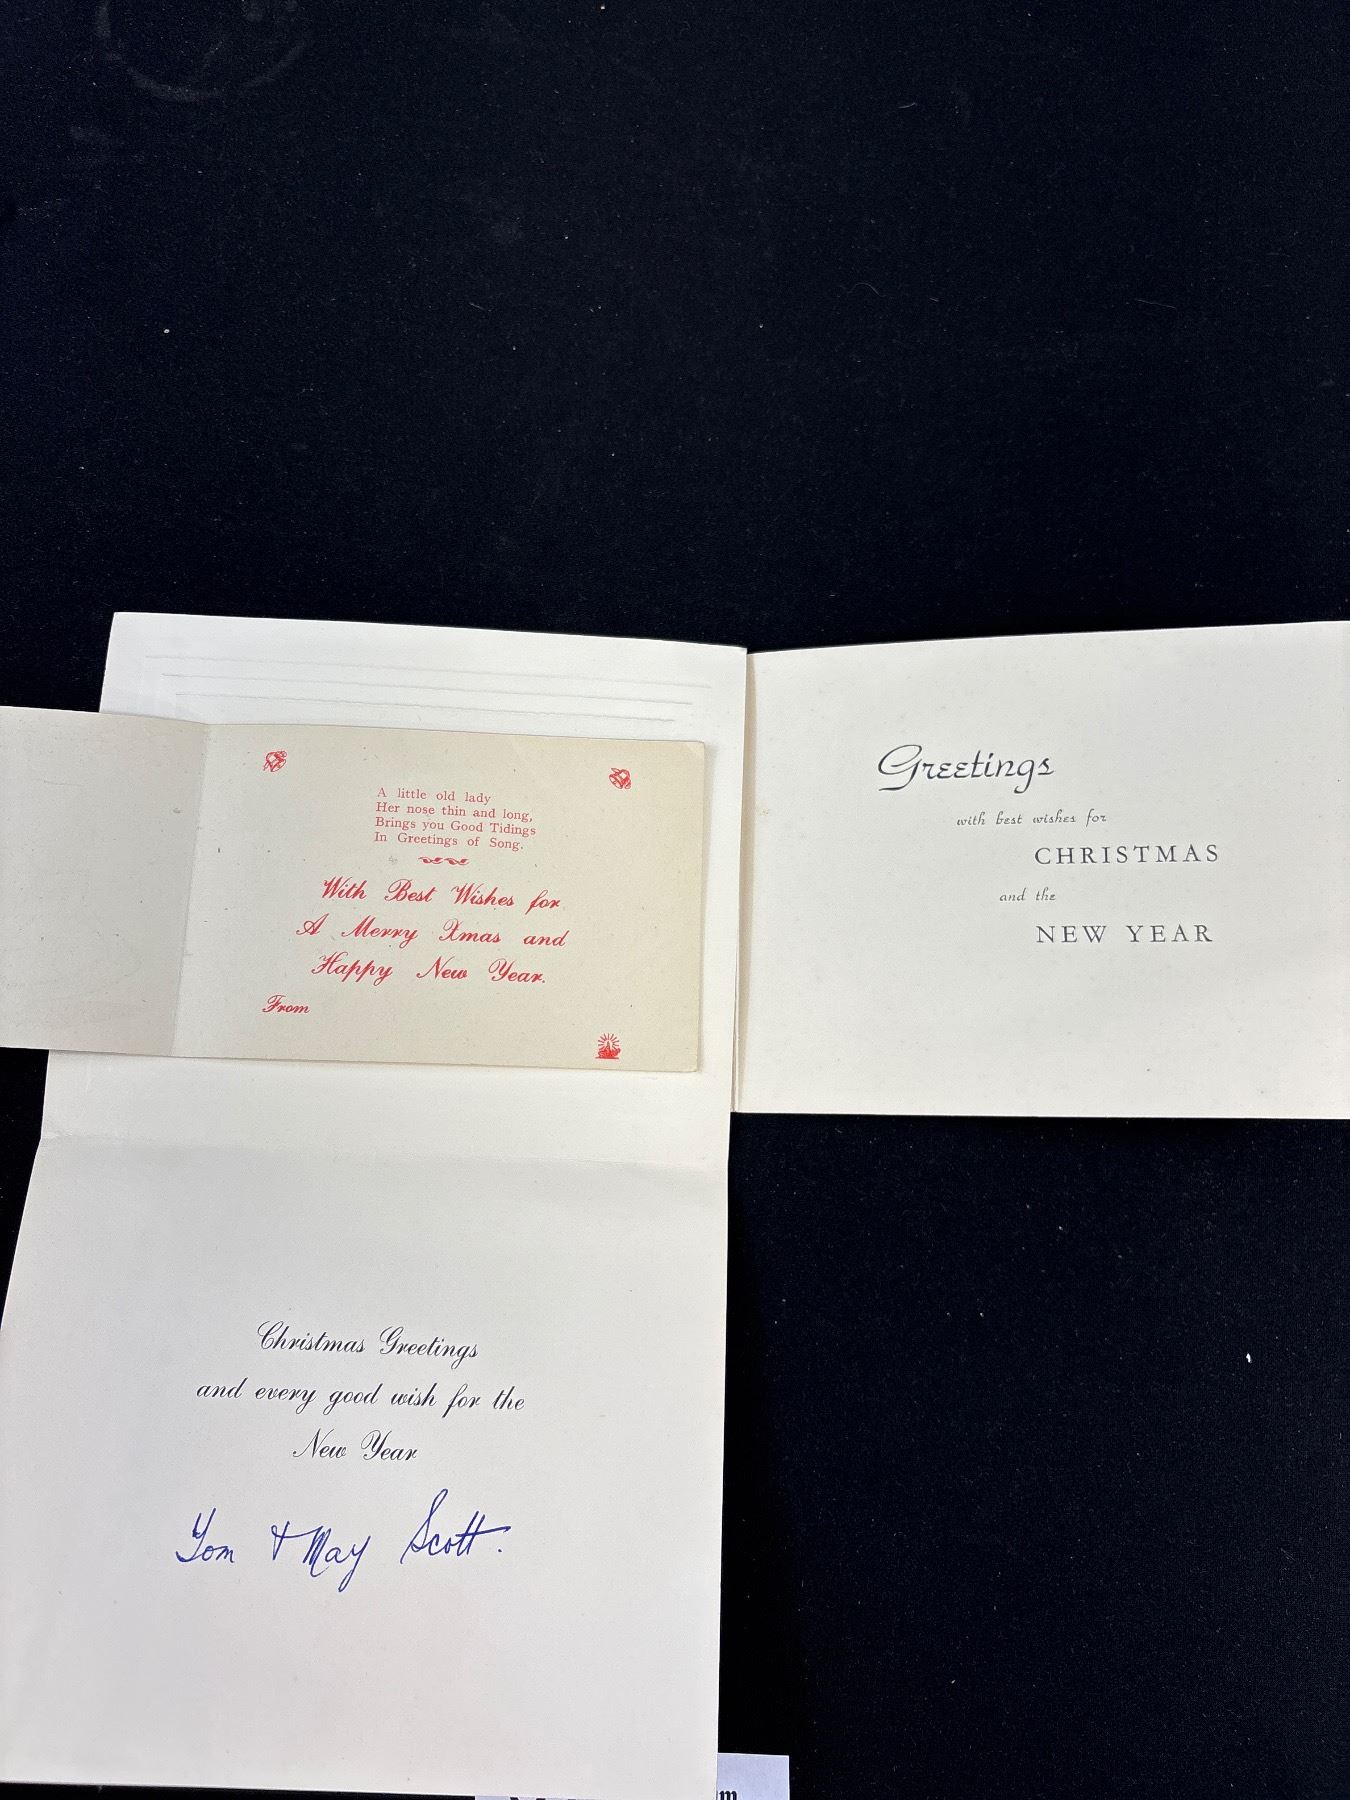 A little old lady
Her nose thin and long,
Brings you Good Tidings
In Greetings of Song.
With Best Wishes for
A Merry Xmas and
Happy New Year.
From
Greetings
with best wishes for
CHRISTMAS
and the
NEW YEAR
Christmas Greetings
and every good wish for the
New Year
Tom & May Scott.